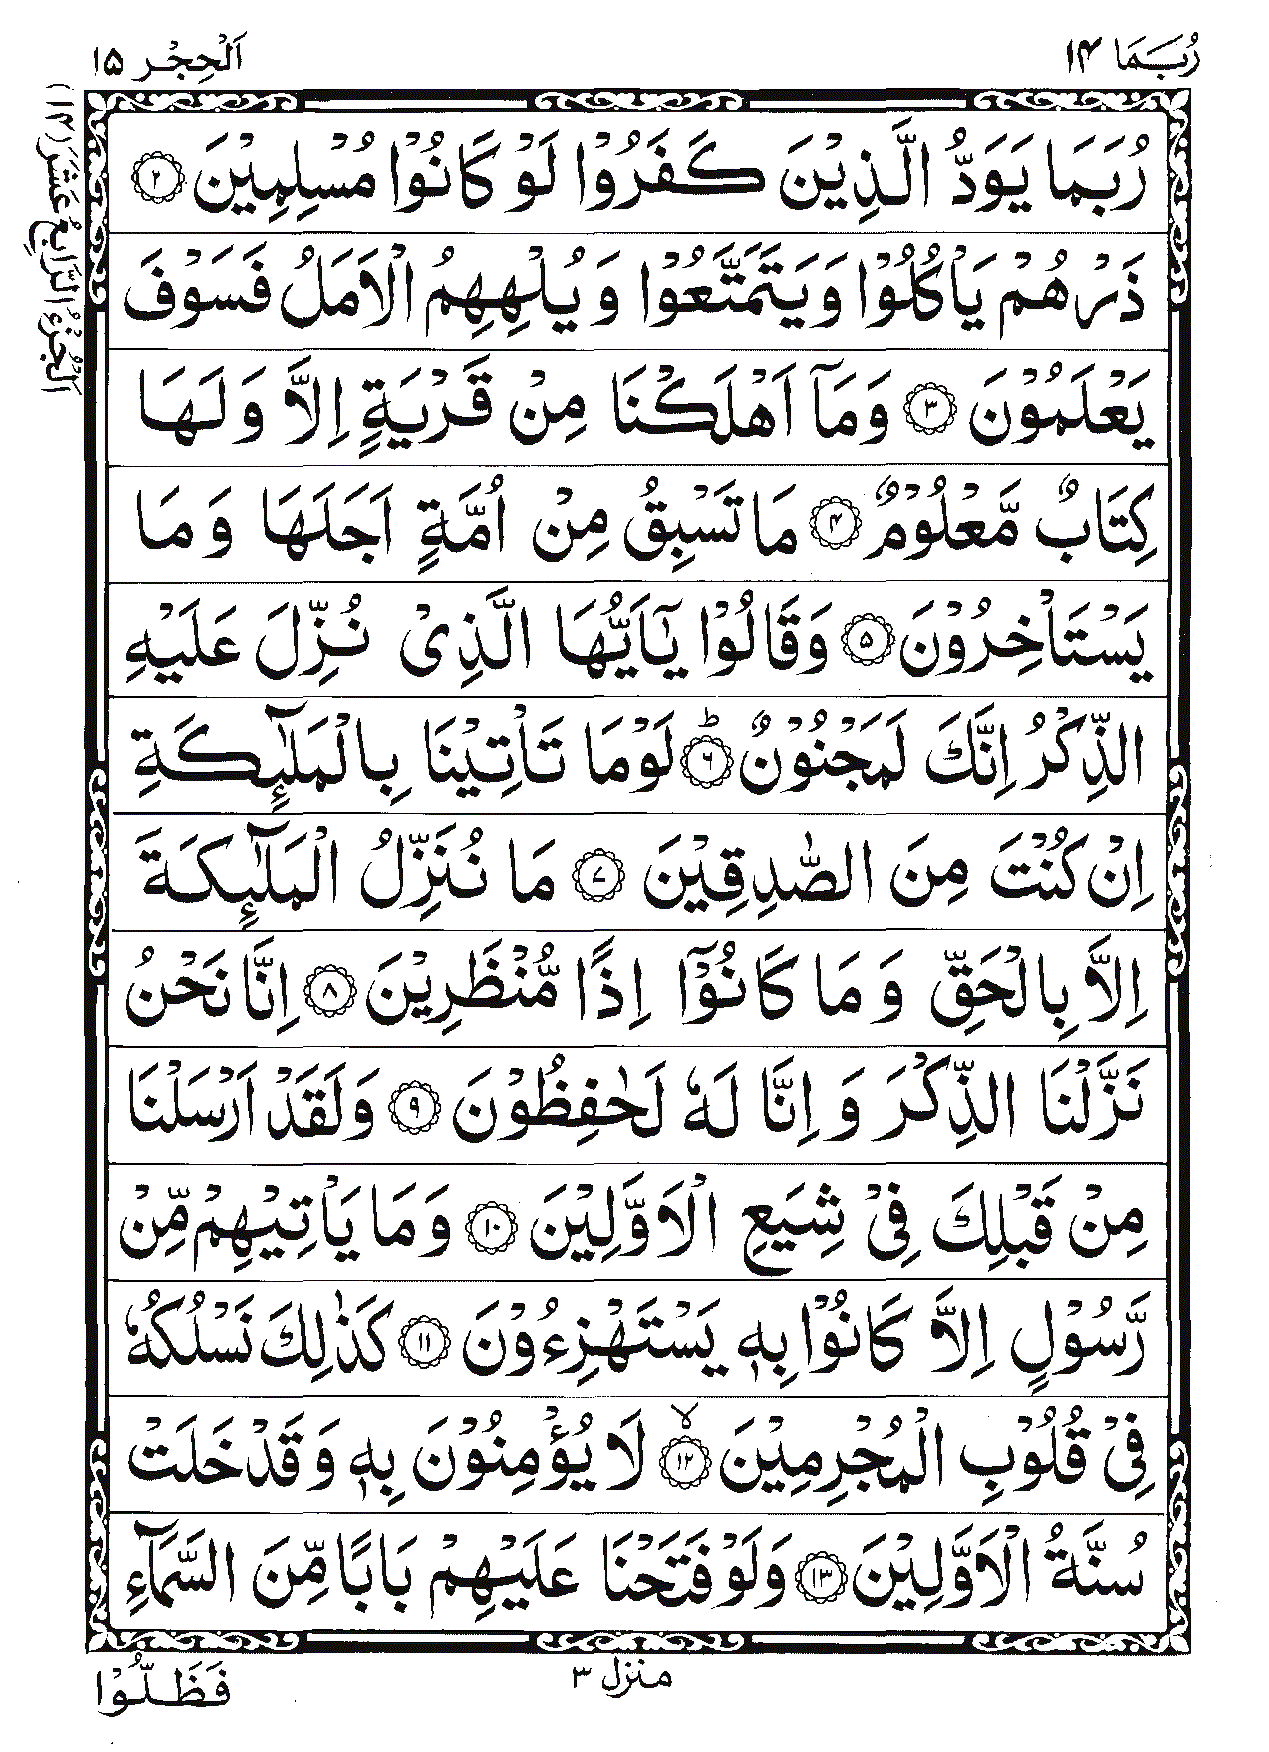 رُبَمَا ١٤
اَلْحِجْر ١٥
اَلْجُزْءُ الرَّابِعُ عَشَرَ (١٤)
رُبَمَا يَوَدُّ الَّذِيْنَ كَفَرُوْا لَوْ كَانُوْا مُسْلِمِيْنَ ﴿۲﴾
ذَرْهُمْ يَاْكُلُوْا وَيَتَمَتَّعُوْا وَ يُلْهِهِمُ الْاَمَلُ فَسَوْفَ
يَعْلَمُوْنَ ﴿۳﴾ وَمَآ اَهْلَكْنَا مِنْ قَرْيَةٍ اِلَّا وَ لَهَا
كِتَابٌ مَّعْلُوْمٌ ﴿۴﴾ مَا تَسْبِقُ مِنْ اُمَّةٍ اَجَلَهَا وَ مَا
يَسْتَاْخِرُوْنَ ﴿۵﴾ وَقَالُوْا يٰۤاَيُّهَا الَّذِىْ نُزِّلَ عَلَيْهِ
الذِّكْرُ اِنَّكَ لَمَجْنُوْنٌ ؕ﴿۶﴾ لَوْمَا تَاْتِيْنَا بِالْمَلٰٓئِكَةِ
اِنْ كُنْتَ مِنَ الصّٰدِقِيْنَ ﴿۷﴾ مَا نُنَزِّلُ الْمَلٰٓئِكَةَ
اِلَّا بِالْحَقِّ وَ مَا كَانُوْۤا اِذًا مُّنْظَرِيْنَ ﴿۸﴾ اِنَّا نَحْنُ
نَزَّلْنَا الذِّكْرَ وَ اِنَّا لَهٗ لَحٰفِظُوْنَ ﴿۹﴾ وَلَقَدْ اَرْسَلْنَا
مِنْ قَبْلِكَ فِىْ شِيَعِ الْاَوَّلِيْنَ ﴿۱۰﴾ وَ مَا يَاْتِيْهِمْ مِّنْ
رَّسُوْلٍ اِلَّا كَانُوْا بِهٖ يَسْتَهْزِءُوْنَ ﴿۱۱﴾ كَذٰلِكَ نَسْلُكُهٗ
فِىْ قُلُوْبِ الْمُجْرِمِيْنَ ۙ﴿۱۲﴾ لَا يُؤْمِنُوْنَ بِهٖ وَ قَدْ خَلَتْ
سُنَّةُ الْاَوَّلِيْنَ ﴿۱۳﴾ وَلَوْ فَتَحْنَا عَلَيْهِمْ بَابًا مِّنَ السَّمَآءِ
منزل ٣
فَظَلُّوْا